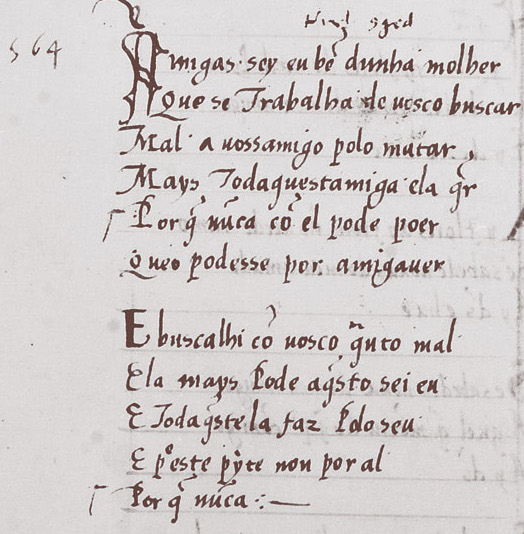 564
Amigas sey eu bẽ dunha molher
Que se Trabalha de uosco buscar
Mal a uossamigo polo matar,
Mays Todaquestamiga ela q̃r
Por q̃ nũca cõ el pode poer
Queo podesse por amigauer
E buscalhi cõ uosco q̃nto mal
Ela mays pode aq̃sto sei eu
E Todaq̃ste la faz pdo seu
E pᵉeste p̃yte non por al
Por q̃ nũca :—